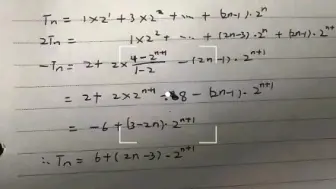 Tn = 1×2¹ + 3×2² + ... + (2n-1)·2ⁿ
2Tn = 1×2² + ... + (2n-3)·2ⁿ + (2n-1)·2ⁿ⁺¹
-Tn = 2 + 2× (4-2ⁿ⁺¹)/(1-2) - (2n-1)·2ⁿ⁺¹
= 2 + 2×2ⁿ⁺¹ - 8 - (2n-1)·2ⁿ⁺¹
= -6 + (3-2n)·2ⁿ⁺¹
∴ Tn = 6 + (2n-3)·2ⁿ⁺¹